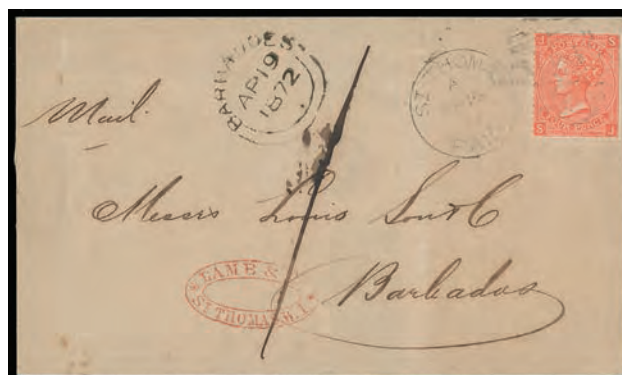 BARBADOES
AP 19
1872
ST THOMAS
A
PAID
J S
POSTAGE
FOUR PENCE
S J
Mail.
Messrs Louis Son & C
Barbados
LAMB &
ST THOMAS W.I.